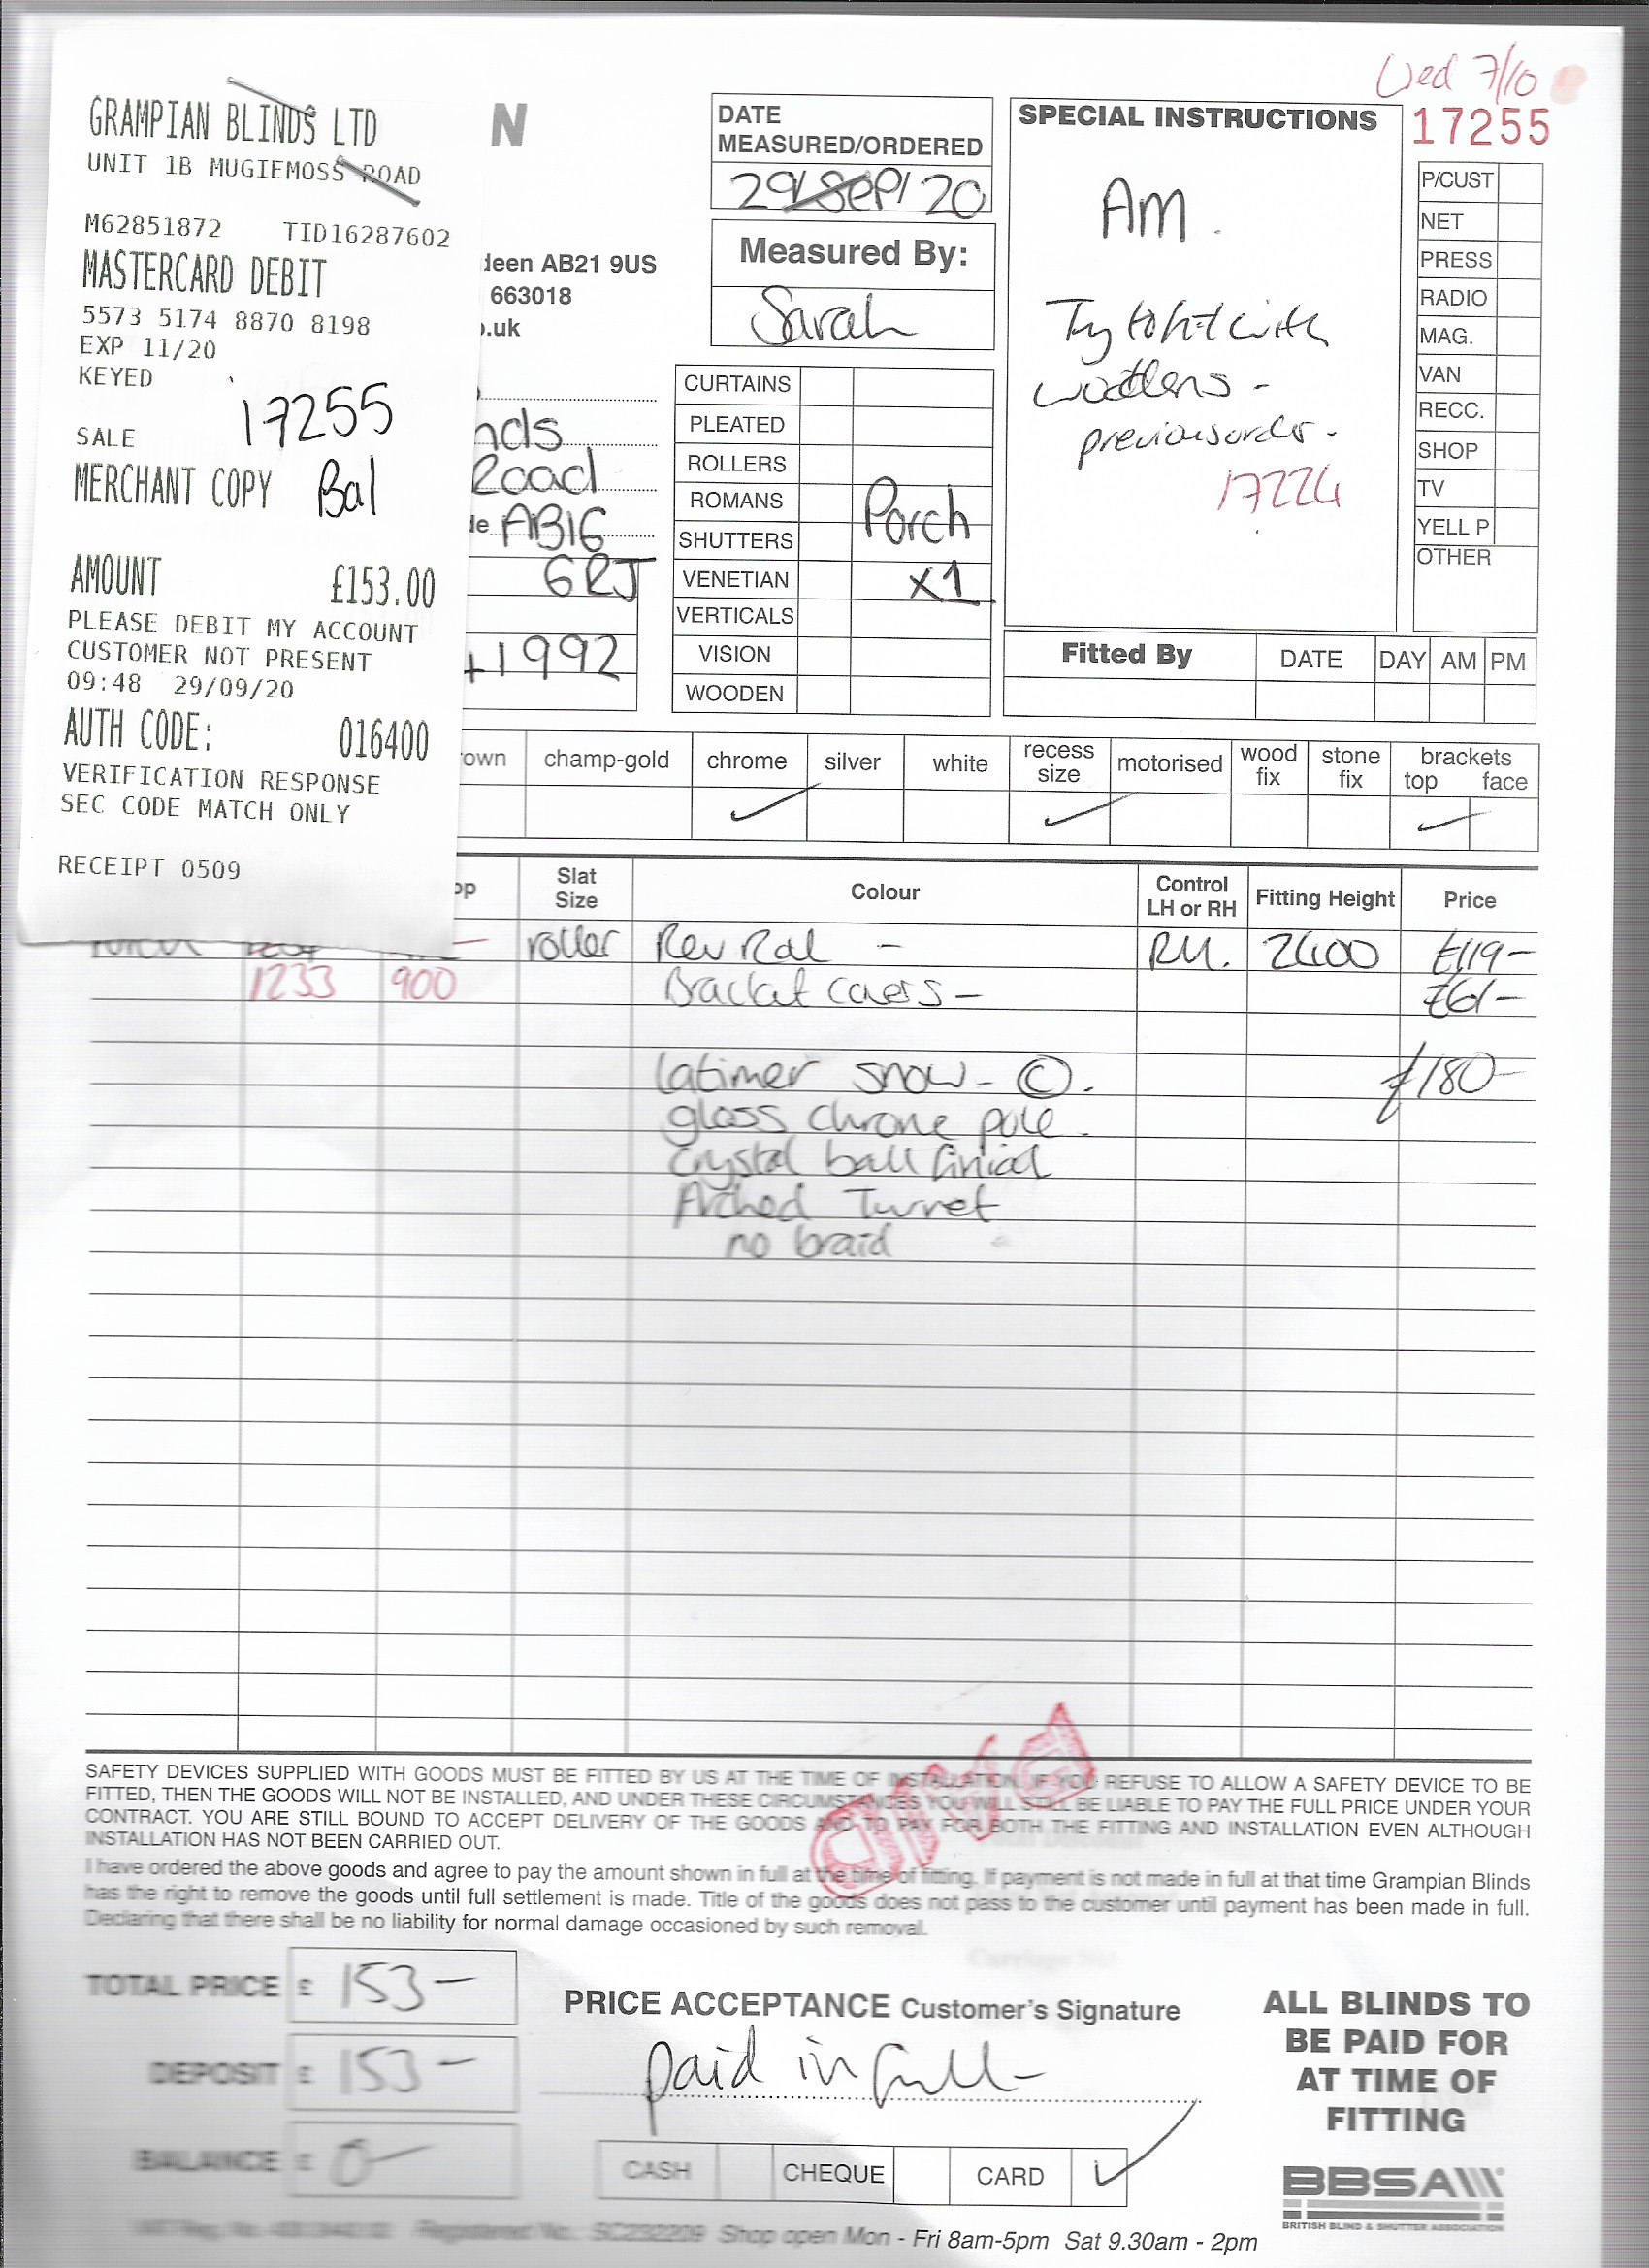 Wed 7/10
17255
GRAMPIAN BLINDS LTD
UNIT 1B MUGIEMOSS ROAD
M62851872 TID16287602
MASTERCARD DEBIT
5573 5174 8870 8198
EXP 11/20
KEYED
17255
SALE
MERCHANT COPY Bal
AMOUNT £153.00
PLEASE DEBIT MY ACCOUNT
CUSTOMER NOT PRESENT
09:48 29/09/20
AUTH CODE: 016400
VERIFICATION RESPONSE
SEC CODE MATCH ONLY
RECEIPT 0509
N
deen AB21 9US
663018
.uk
nds
Road
AB16
6RJ
1992
DATE
MEASURED/ORDERED
29/Sep/20
Measured By:
Sarah
CURTAINS
PLEATED
ROLLERS
ROMANS
SHUTTERS
VENETIAN
VERTICALS
VISION
WOODEN
Porch
x1
SPECIAL INSTRUCTIONS
Am.
Try to fit with
woodens -
previous order -
17224
P/CUST
NET
PRESS
RADIO
MAG.
VAN
RECC.
SHOP
TV
YELL P
OTHER
Fitted By DATE DAY AM PM
own champ-gold chrome silver white recess size motorised wood fix stone fix brackets top face
op Slat Size Colour Control LH or RH Fitting Height Price
roller Rev Ral - RH. 2400 £119-
1233 900 Bracket covers - £61-
Latimer snow - ©. £180-
gloss chrome pole.
Crystal ball finial
Arched Turret
no braid
SAFETY DEVICES SUPPLIED WITH GOODS MUST BE FITTED BY US AT THE TIME OF INSTALLATION. IF YOU REFUSE TO ALLOW A SAFETY DEVICE TO BE
FITTED, THEN THE GOODS WILL NOT BE INSTALLED, AND UNDER THESE CIRCUMSTANCES YOU WILL STILL BE LIABLE TO PAY THE FULL PRICE UNDER YOUR
CONTRACT. YOU ARE STILL BOUND TO ACCEPT DELIVERY OF THE GOODS AND TO PAY FOR BOTH THE FITTING AND INSTALLATION EVEN ALTHOUGH
INSTALLATION HAS NOT BEEN CARRIED OUT.
I have ordered the above goods and agree to pay the amount shown in full at the time of fitting. If payment is not made in full at that time Grampian Blinds
has the right to remove the goods until full settlement is made. Title of the goods does not pass to the customer until payment has been made in full.
Declaring that there shall be no liability for normal damage occasioned by such removal.
TOTAL PRICE £ 153-
DEPOSIT £ 153-
BALANCE £ 0-
PRICE ACCEPTANCE Customer's Signature
paid in full-
CASH CHEQUE CARD
ALL BLINDS TO
BE PAID FOR
AT TIME OF
FITTING
BBSA
BRITISH BLIND & SHUTTER ASSOCIATION
Registered No.: SC232209 Shop open Mon - Fri 8am-5pm Sat 9.30am - 2pm